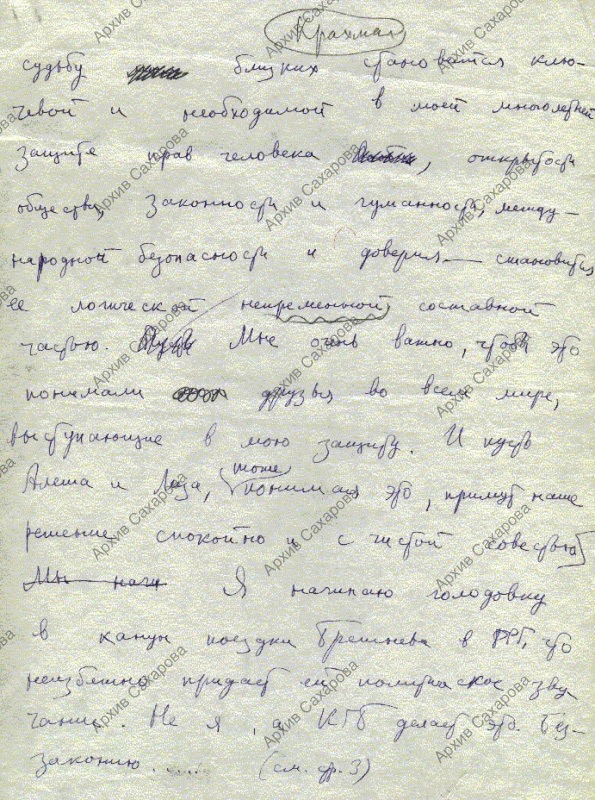 Крахмал
судьбу близких становится клю-
чевой и необходимой в моей многолетней
защите прав человека, открытости
общества, законности и гуманности, между-
народной безопасности и доверия — становится
ее логической непременной составной
частью. Мне очень важно, чтобы это
понимали друзья во всем мире,
выступающие в мою защиту. И пусть
Алеша и Лиза, тоже понимая это, примут наше
решение спокойно и с чистой совестью
Мы начи Я начинаю голодовку
в канун поездки Брежнева в ФРГ, это
неизбежно придает ей политическое зву
чание. Не я, а КГБ делает это. Без-
законию..... (см. стр. 3)
Архив Сахарова